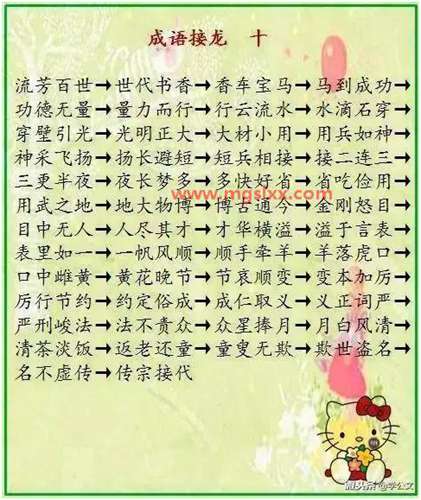 成语接龙 十
流芳百世→世代书香→香车宝马→马到成功→
功德无量→量力而行→行云流水→水滴石穿→
穿壁引光→光明正大→大材小用→用兵如神→
神采飞扬→扬长避短→短兵相接→接二连三→
三更半夜→夜长梦多→多快好省→省吃俭用→
www.mgslxx.com
用武之地→地大物博→博古通今→金刚怒目→
目中无人→人尽其才→才华横溢→溢于言表→
表里如一→一帆风顺→顺手牵羊→羊落虎口→
口中雌黄→黄花晚节→节哀顺变→变本加厉→
厉行节约→约定俗成→成仁取义→义正词严→
严刑峻法→法不贵众→众星捧月→月白风清→
清茶淡饭→返老还童→童叟无欺→欺世盗名→
名不虚传→传宗接代
头条@学公文